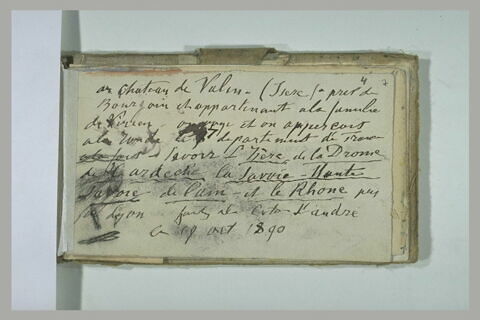 au chateau de Valin - (Isere) pres de
Bourgoin et appartenant a la famille
de Virieu on voye et on apperçoit
a la ronde 7 departement de
a savoir L'Isère de la Drome
de L'ardeche la Savoie - Haute
Savoie - de l'ain et le Rhone pres
de Lyon fort de la Cote St andré
ce 19 oct 1890